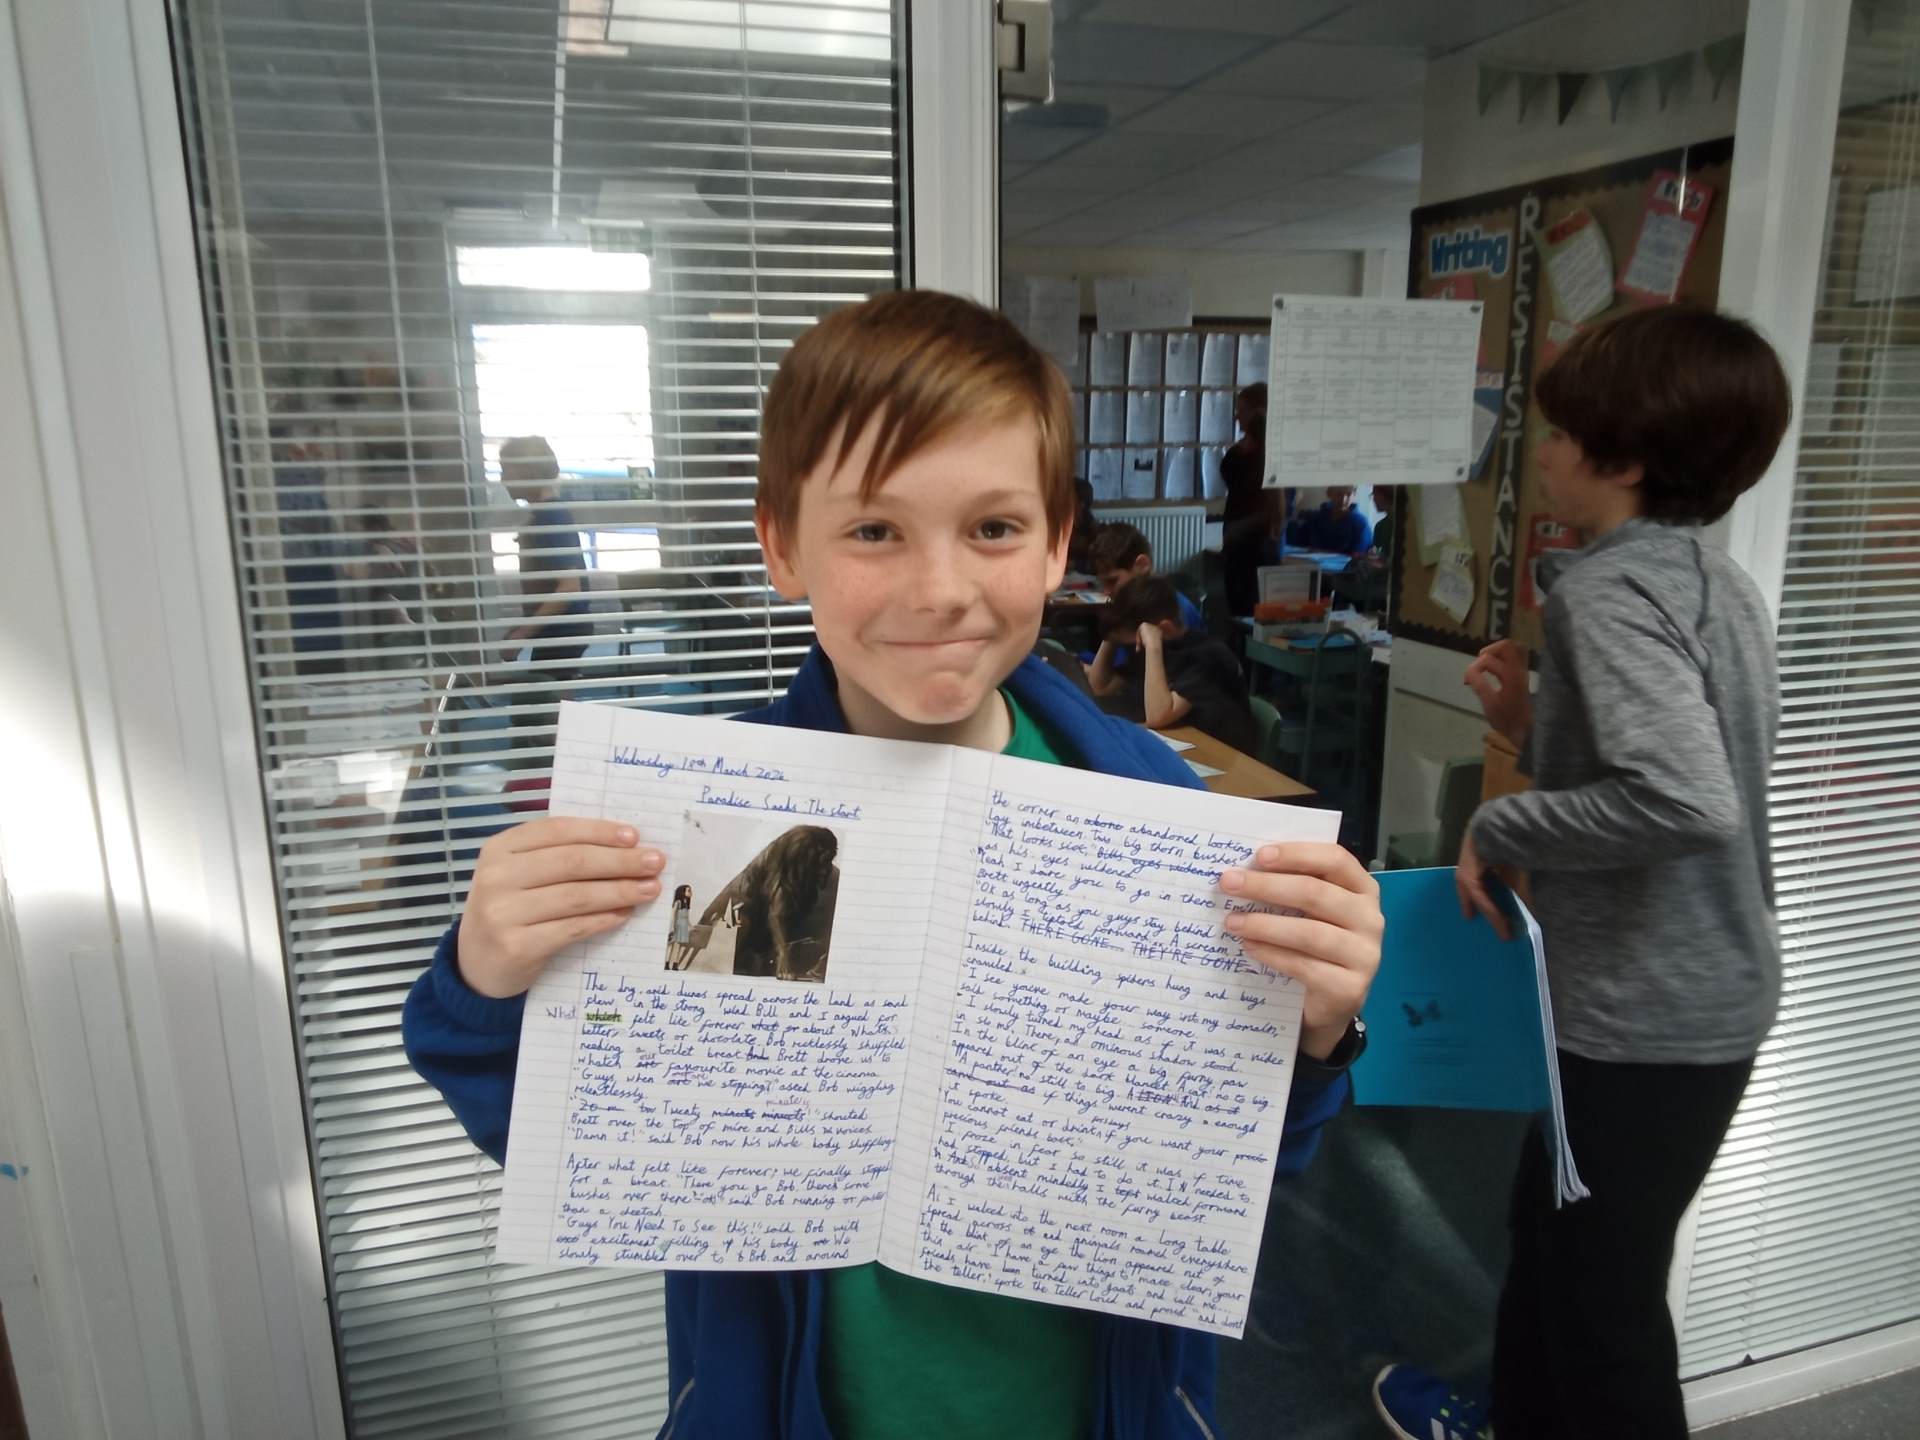 Wednesday 18th March 2026
Paradise Sands: The start
The dry, arid dunes spread across the land as sand
flew in the strong wind. Bill and I argued for
What which felt like forever what or about what's
better, sweets or chocolate. Bob recklessly shuffled
needing a toilet break. And Brett drove us to
whatch our favourite movie at the cinema
"Guys, when are we stopping?" asked Bob wiggling
relentlessly.
Twenty minutes minutely!" shouted
Brett over the top of mine and Bills voices
"Damn it!" said Bob now his whole body shuffling
After what felt like forever, we finally stopped
for a break. "There you go Bob, theres some
bushes over there" "ok" said Bob running or faster
than a cheetah
"Guys You Need To See this!" said Bob with
excitement filling up his body. We
slowly stumbled over to Bob and around
the corner an abandoned looking
lay imbetween two big thorn bushes
"That looks sick," Bills eyes widening
as his eyes widened.
"Yeah I dare you to go in there
Brett urgently.
"Ok as long as you guys stay behind me,
slowly I tiptoed forward. A scream, I
behind. THERE GONE THEY'RE GONE
Inside the building spiders hung and bugs
crawled.
"I see you've made your way into my domain,"
said something or maybe... someone.
I slowly turned my head as if it was a video
in slo mo. There, an ominous shadow stood.
In the blink of an eye a big furry paw
appeared out of the dark blanket. A cat! no to big.
"A panther!" no, still to big. A LION! And as it
came out as if things weren't crazy enough
it spoke.
"You cannot eat or drink for 3 days if you want your
precious friends back,"
I froze in fear so still it was if time
had stopped, but I had to do it. I N needed to.
absent mindedly I walked forward
through the halls with the furry beast.
As I walked into the next room a long table
spread across and animals roamed everywhere
In the blink of an eye the lion appeared out of
thin air. "I have a few things to make clear, your
friends have been turned into goats and call me...
the teller," spoke the Teller Loud and proud "and dont
Writing
RESISTANCE